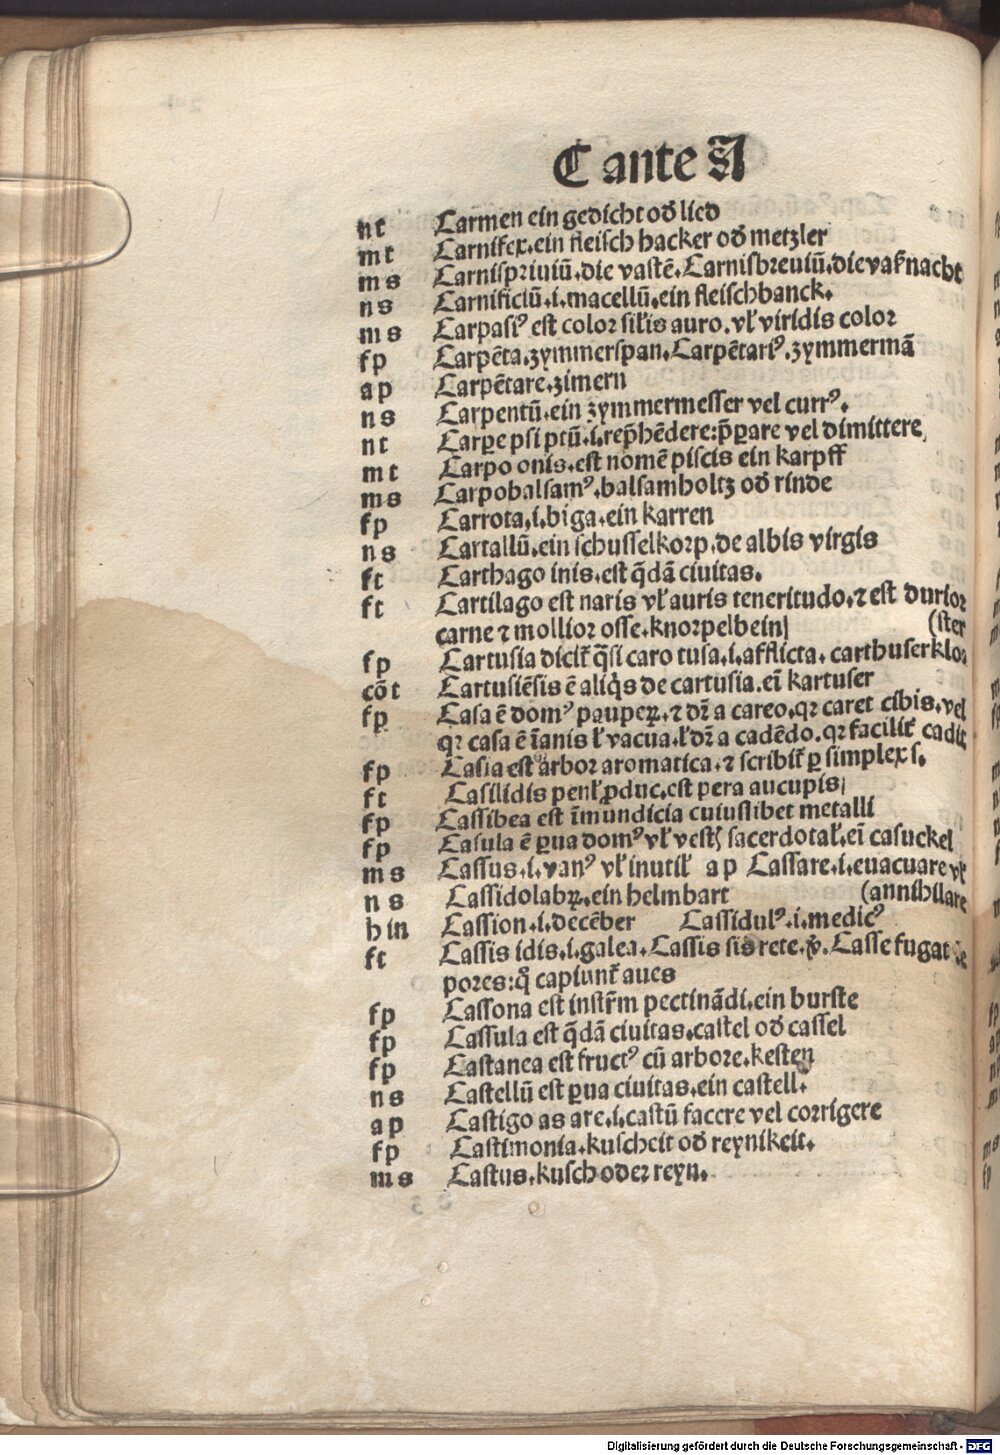 C ante A
nt Carmen ein gedicht od̄ lied
mt Carnifex.ein fleisch hacker od̄ metzler
ms Carnispriuiū.die vastē.Carnisbreuiū.die vaſnacht
ns Carnificiū.i.macellū.ein fleischbanck.
ms Carpasiꝰ est color sil̄is auro.vł viridis color
fp Carpēta.zymmerspan.Carpētariꝰ.zymmermā
ap Carpētare.zimern
ns Carpentū.ein zymmermesser vel currꝰ.
nt Carpe psi ptū.i.rep̄hēdere:p̄ꝑare vel dimittere
mt Carpo onis.est nomē piscis ein karpff
ms Carpobalsamꝰ.balsamholtz od̄ rinde
fp Carrota.i.biga.ein karren
ns Cartallū.ein schusselkorp.de albis virgis
ft Carthago inis.est q̄dā ciuitas.
ft Cartilago est naris vł auris teneritudo.⁊ est durior
carne ⁊ mollior osse.knorpelbein (ster
fp Cartusia dicit̄ q̄si caro tusa.i.afflicta. carthuserklo⸗
cōt Cartusiēsis ē aliq̇s de cartusia.ei̅ kartuser
fp Casa ē domꝰ pauperꝝ.⁊ dr̄ a careo.qꝛ caret cibis.vel
qꝛ casa ē īanis ł vacua.ł dr̄ a cadēdo.qꝛ facilit̄ cadit
fp Casia est arbor aromatica.⁊ scribit̄ ꝑ simplex s.
ft Casilidis penl̄ ꝓduc.est pera aucupis
fp Cassibea est īmundicia cuiuslibet metalli
fp Casula ē ꝑua domꝰ vł vestꝭ sacerdotal̄.ei̅ casuckel
ms Cassus.i.vanꝰ vł inutil̄ ap Cassare.i.euacuare vł
ns Cassidolabꝝ.ein helmbart (annihilare
hin Cassion.i.decēber Cassidulꝰ.i.medicꝰ
ft Cassis idis.i.galea.Cassis sis rete.ꝟ̄. Casse fugat le
pores:q̊ capiunt̄ aues
fp Cassona est instr̄m pectinādi.ein burste
fp Cassula est q̄dā ciuitas.castel od̄ cassel
fp Castanea est fructꝰ cū arbore.kesten
ns Castellū est ꝑua ciuitas.ein castell.
ap Castigo as are.i.castū facere vel corrigere
fp Castimonia.kuscheit od̄ reynikeit.
ms Castus.kusch oder reyn.
Digitalisierung gefördert durch die Deutsche Forschungsgemeinschaft - DFG